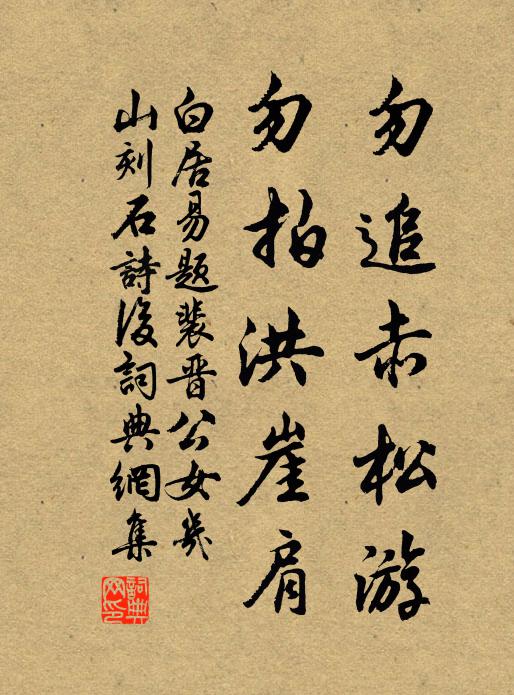 勿追赤松游
勿拍洪崖肩
白居易題裴晋公女几
山刻石詩後詞典網集
詞典
网印